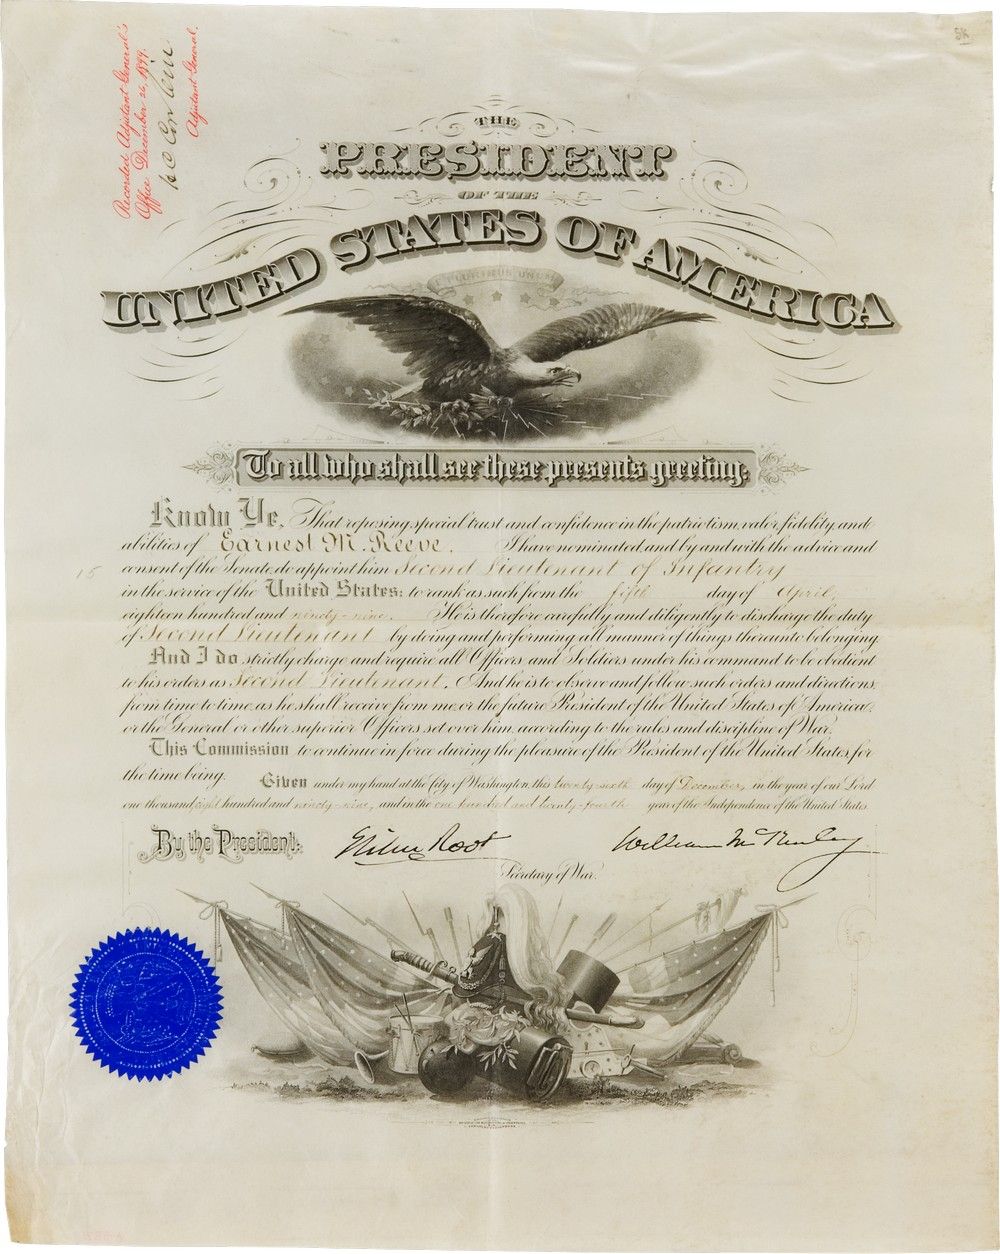 Recorded Adjutant General's
Office December 26, 1899.
Adjutant General.
THE
PRESIDENT
OF THE
UNITED STATES OF AMERICA
E PLURIBUS UNUM
To all who shall see these presents greeting:
Know Ye, That reposing special trust and confidence in the patriotism, valor, fidelity, and
abilities of Earnest M. Reeve, I have nominated, and by and with the advice and
consent of the Senate, do appoint him Second Lieutenant of Infantry
15
in the service of the United States: to rank as such from the fifth day of April,
eighteen hundred and ninety-nine. He is therefore carefully and diligently to discharge the duty
of Second Lieutenant by doing and performing all manner of things thereunto belonging.
And I do strictly charge and require all Officers and Soldiers under his command to be obedient
to his orders as Second Lieutenant. And he is to observe and follow such orders and directions,
from time to time, as he shall receive from me, or the future President of the United States of America,
or the General or other superior Officers set over him, according to the rules and discipline of War.
This Commission to continue in force during the pleasure of the President of the United States for
the time being. Given under my hand at the City of Washington, this twenty-sixth day of December, in the year of our Lord
one thousand eight hundred and ninety-nine, and in the one hundred and twenty-fourth year of the Independence of the United States.
By the President: Elihu Root William McKinley
Secretary of War.